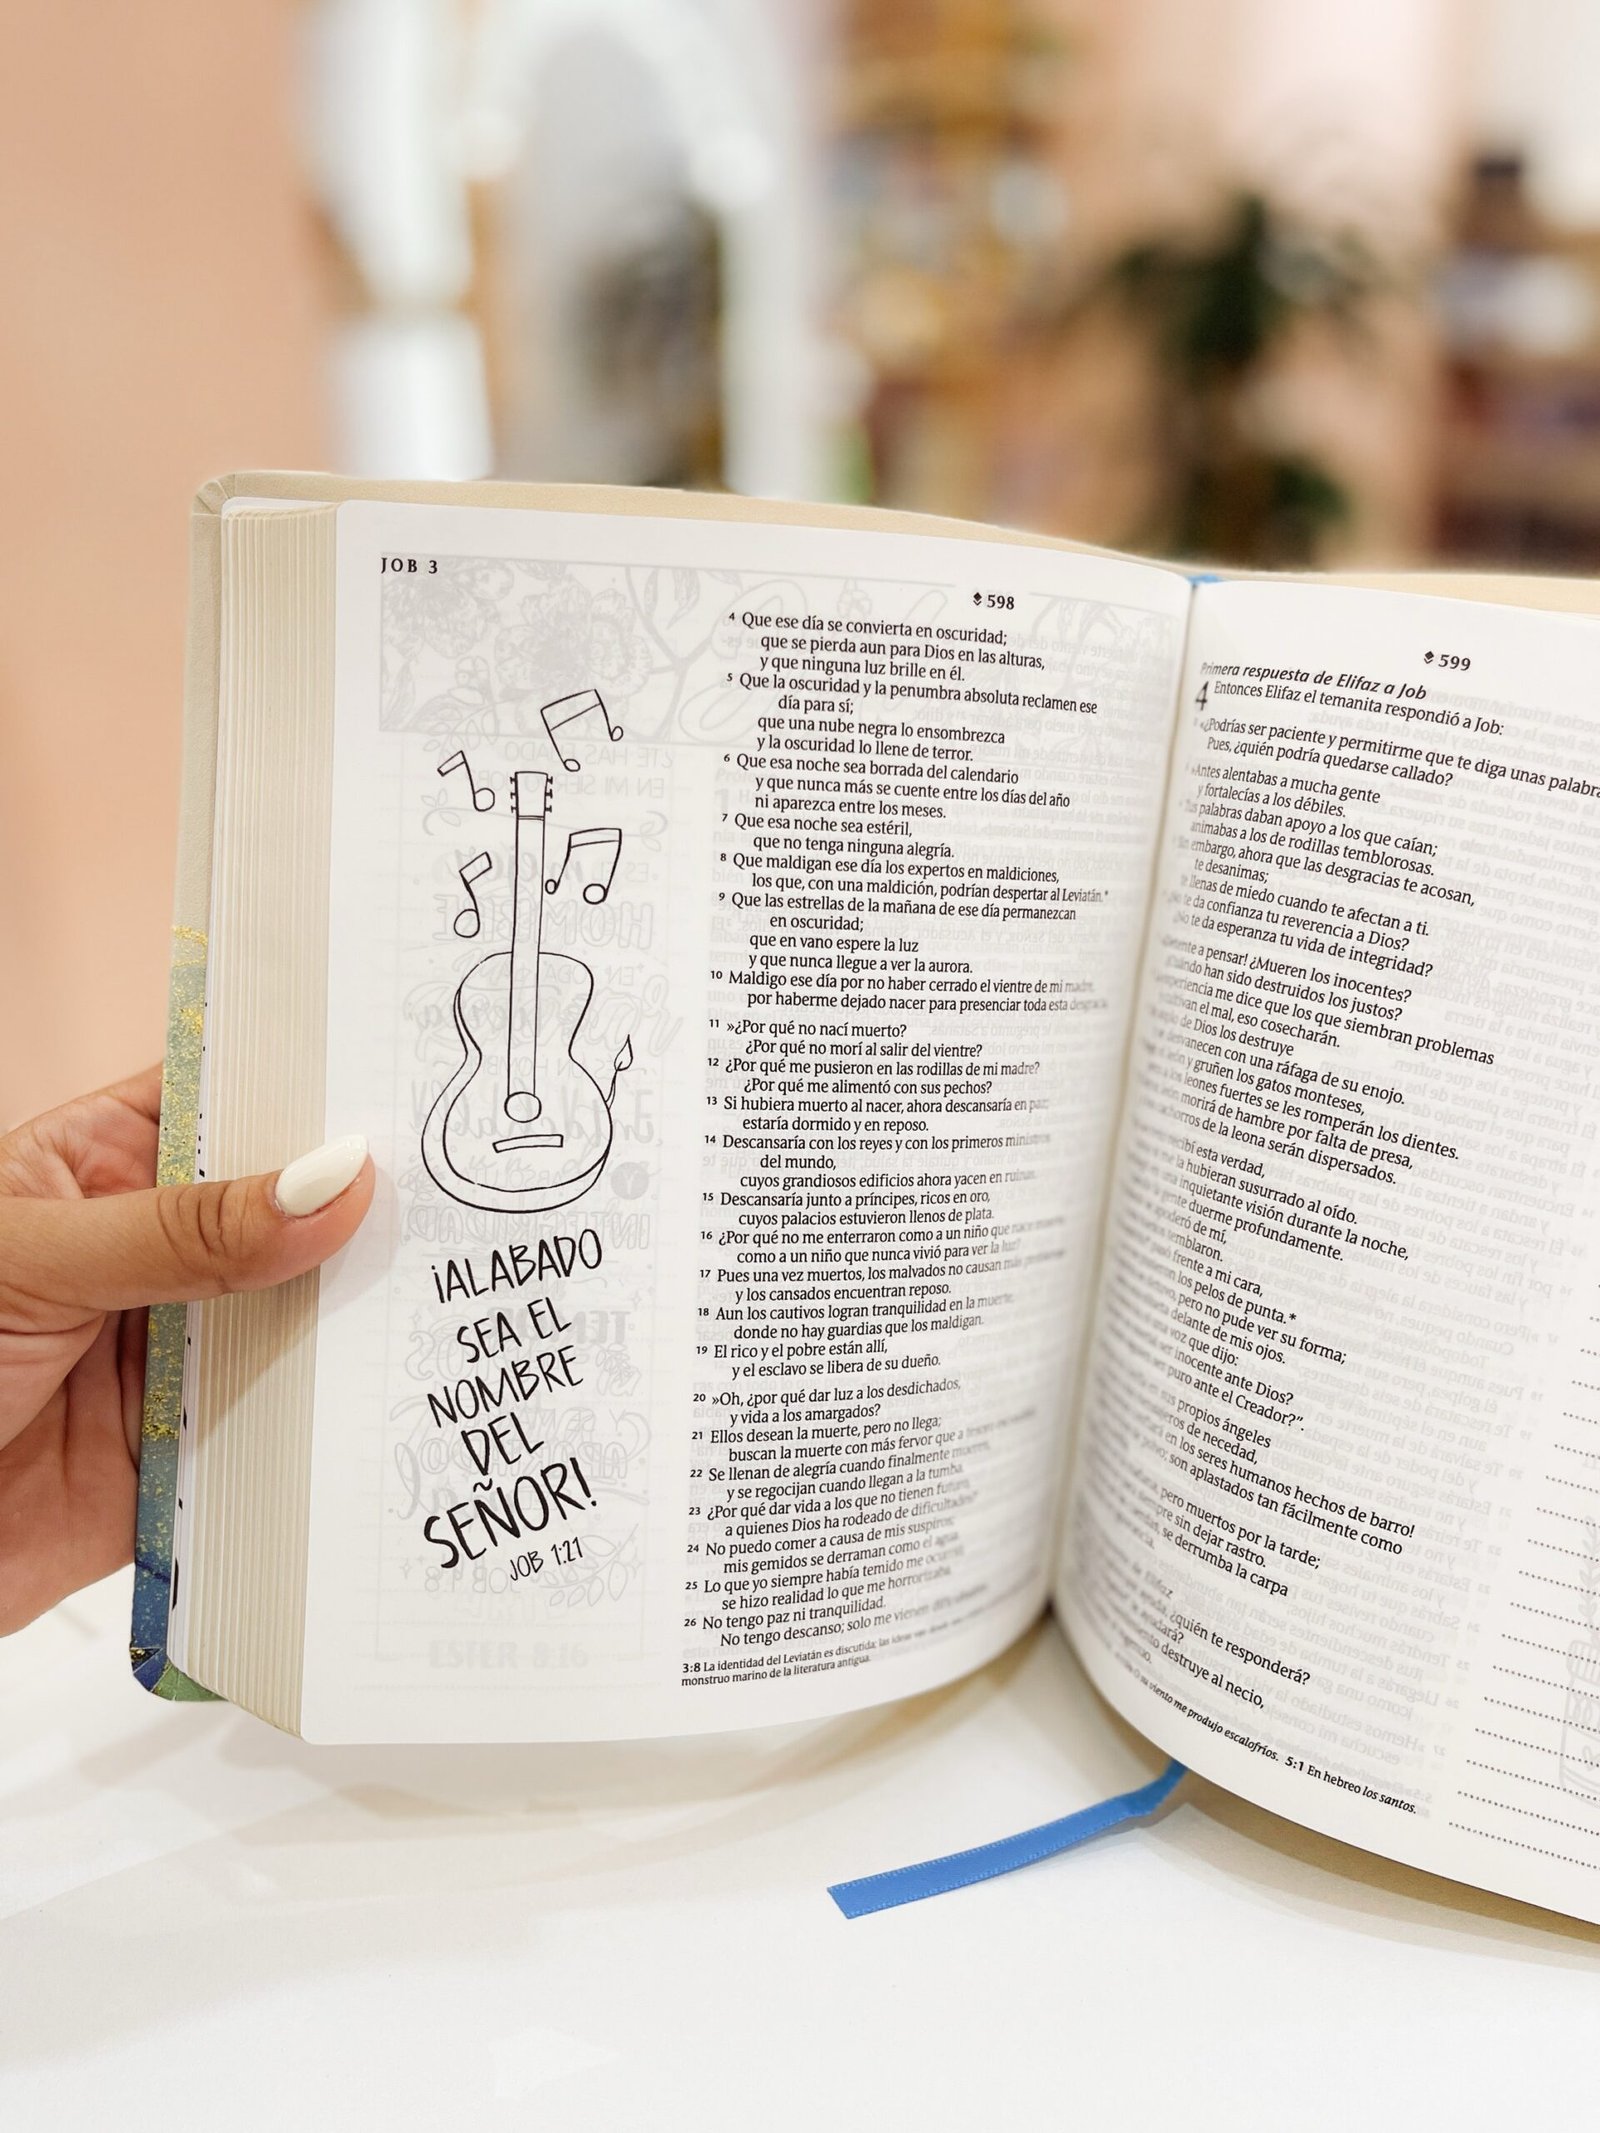 JOB 3
598
¡ALABADO
SEA EL
NOMBRE
DEL
SEÑOR!
JOB 1:21
4 Que ese día se convierta en oscuridad;
que se pierda aun para Dios en las alturas,
y que ninguna luz brille en él.
5 Que la oscuridad y la penumbra absoluta reclamen ese
día para sí;
que una nube negra lo ensombrezca
y la oscuridad lo llene de terror.
6 Que esa noche sea borrada del calendario
y que nunca más se cuente entre los días del año
ni aparezca entre los meses.
7 Que esa noche sea estéril,
que no tenga ninguna alegría.
8 Que maldigan ese día los expertos en maldiciones,
los que, con una maldición, podrían despertar al Leviatán.*
9 Que las estrellas de la mañana de ese día permanezcan
en oscuridad;
que en vano espere la luz
y que nunca llegue a ver la aurora.
10 Maldigo ese día por no haber cerrado el vientre de mi madre,
por haberme dejado nacer para presenciar toda esta desgracia.
11 »¿Por qué no nací muerto?
¿Por qué no morí al salir del vientre?
12 ¿Por qué me pusieron en las rodillas de mi madre?
¿Por qué me alimentó con sus pechos?
13 Si hubiera muerto al nacer, ahora descansaría en paz;
estaría dormido y en reposo.
14 Descansaría con los reyes y con los primeros ministros
del mundo,
cuyos grandiosos edificios ahora yacen en ruinas.
15 Descansaría junto a príncipes, ricos en oro,
cuyos palacios estuvieron llenos de plata.
16 ¿Por qué no me enterraron como a un niño que nace muerto,
como a un niño que nunca vivió para ver la luz?
17 Pues una vez muertos, los malvados no causan más problemas
y los cansados encuentran reposo.
18 Aun los cautivos logran tranquilidad en la muerte,
donde no hay guardias que los maldigan.
19 El rico y el pobre están allí,
y el esclavo se libera de su dueño.
20 »Oh, ¿por qué dar luz a los desdichados,
y vida a los amargados?
21 Ellos desean la muerte, pero no llega;
buscan la muerte con más fervor que a tesoro
22 Se llenan de alegría cuando finalmente mueren,
y se regocijan cuando llegan a la tumba.
23 ¿Por qué dar vida a los que no tienen futuro,
a quienes Dios ha rodeado de dificultades?
24 No puedo comer a causa de mis suspiros;
mis gemidos se derraman como el agua.
25 Lo que yo siempre había temido me ocurrió;
se hizo realidad lo que me horrorizaba.
26 No tengo paz ni tranquilidad.
No tengo descanso; solo me vienen dificultades
3:8 La identidad del Leviatán es discutida; las ideas van desde
monstruo marino de la literatura antigua.
599
Primera respuesta de Elifaz a Job
4 Entonces Elifaz el temanita respondió a Job:
«¿Podrías ser paciente y permitirme que te diga unas palabras
Pues, ¿quién podría quedarse callado?
»Antes alentabas a mucha gente
y fortalecías a los débiles.
Tus palabras daban apoyo a los que caían;
animabas a los de rodillas temblorosas.
embargo, ahora que las desgracias te acosan,
te desanimas;
te llenas de miedo cuando te afectan a ti.
te da confianza tu reverencia a Dios?
te da esperanza tu vida de integridad?
a pensar! ¿Mueren los inocentes?
¿Cuándo han sido destruidos los justos?
experiencia me dice que los que siembran problemas
y cultivan el mal, eso cosecharán.
de Dios los destruye
desvanecen con una ráfaga de su enojo.
y gruñen los gatos monteses,
a los leones fuertes se les romperán los dientes.
morirá de hambre por falta de presa,
cachorros de la leona serán dispersados.
esta verdad,
me la hubieran susurrado al oído.
inquietante visión durante la noche,
gente duerme profundamente.
de mí,
temblaron.
frente a mi cara,
los pelos de punta.*
pero no pude ver su forma;
delante de mis ojos.
una voz que dijo:
ser inocente ante Dios?
puro ante el Creador?”.
sus propios ángeles
de necedad,
en los seres humanos hechos de barro!
polvo; son aplastados tan fácilmente como
pero muertos por la tarde;
siempre sin dejar rastro.
se derrumba la carpa
¿quién te responderá?
ayudará?
destruye al necio,
viento me produjo escalofríos. 5:1 En hebreo los santos.